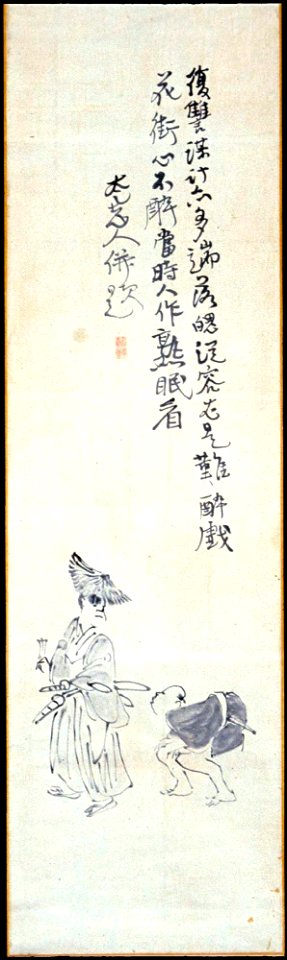 復讐謀計亦多端落魄従容尤是難酔戯
花街心不酔當時人作熟眠看
人併題